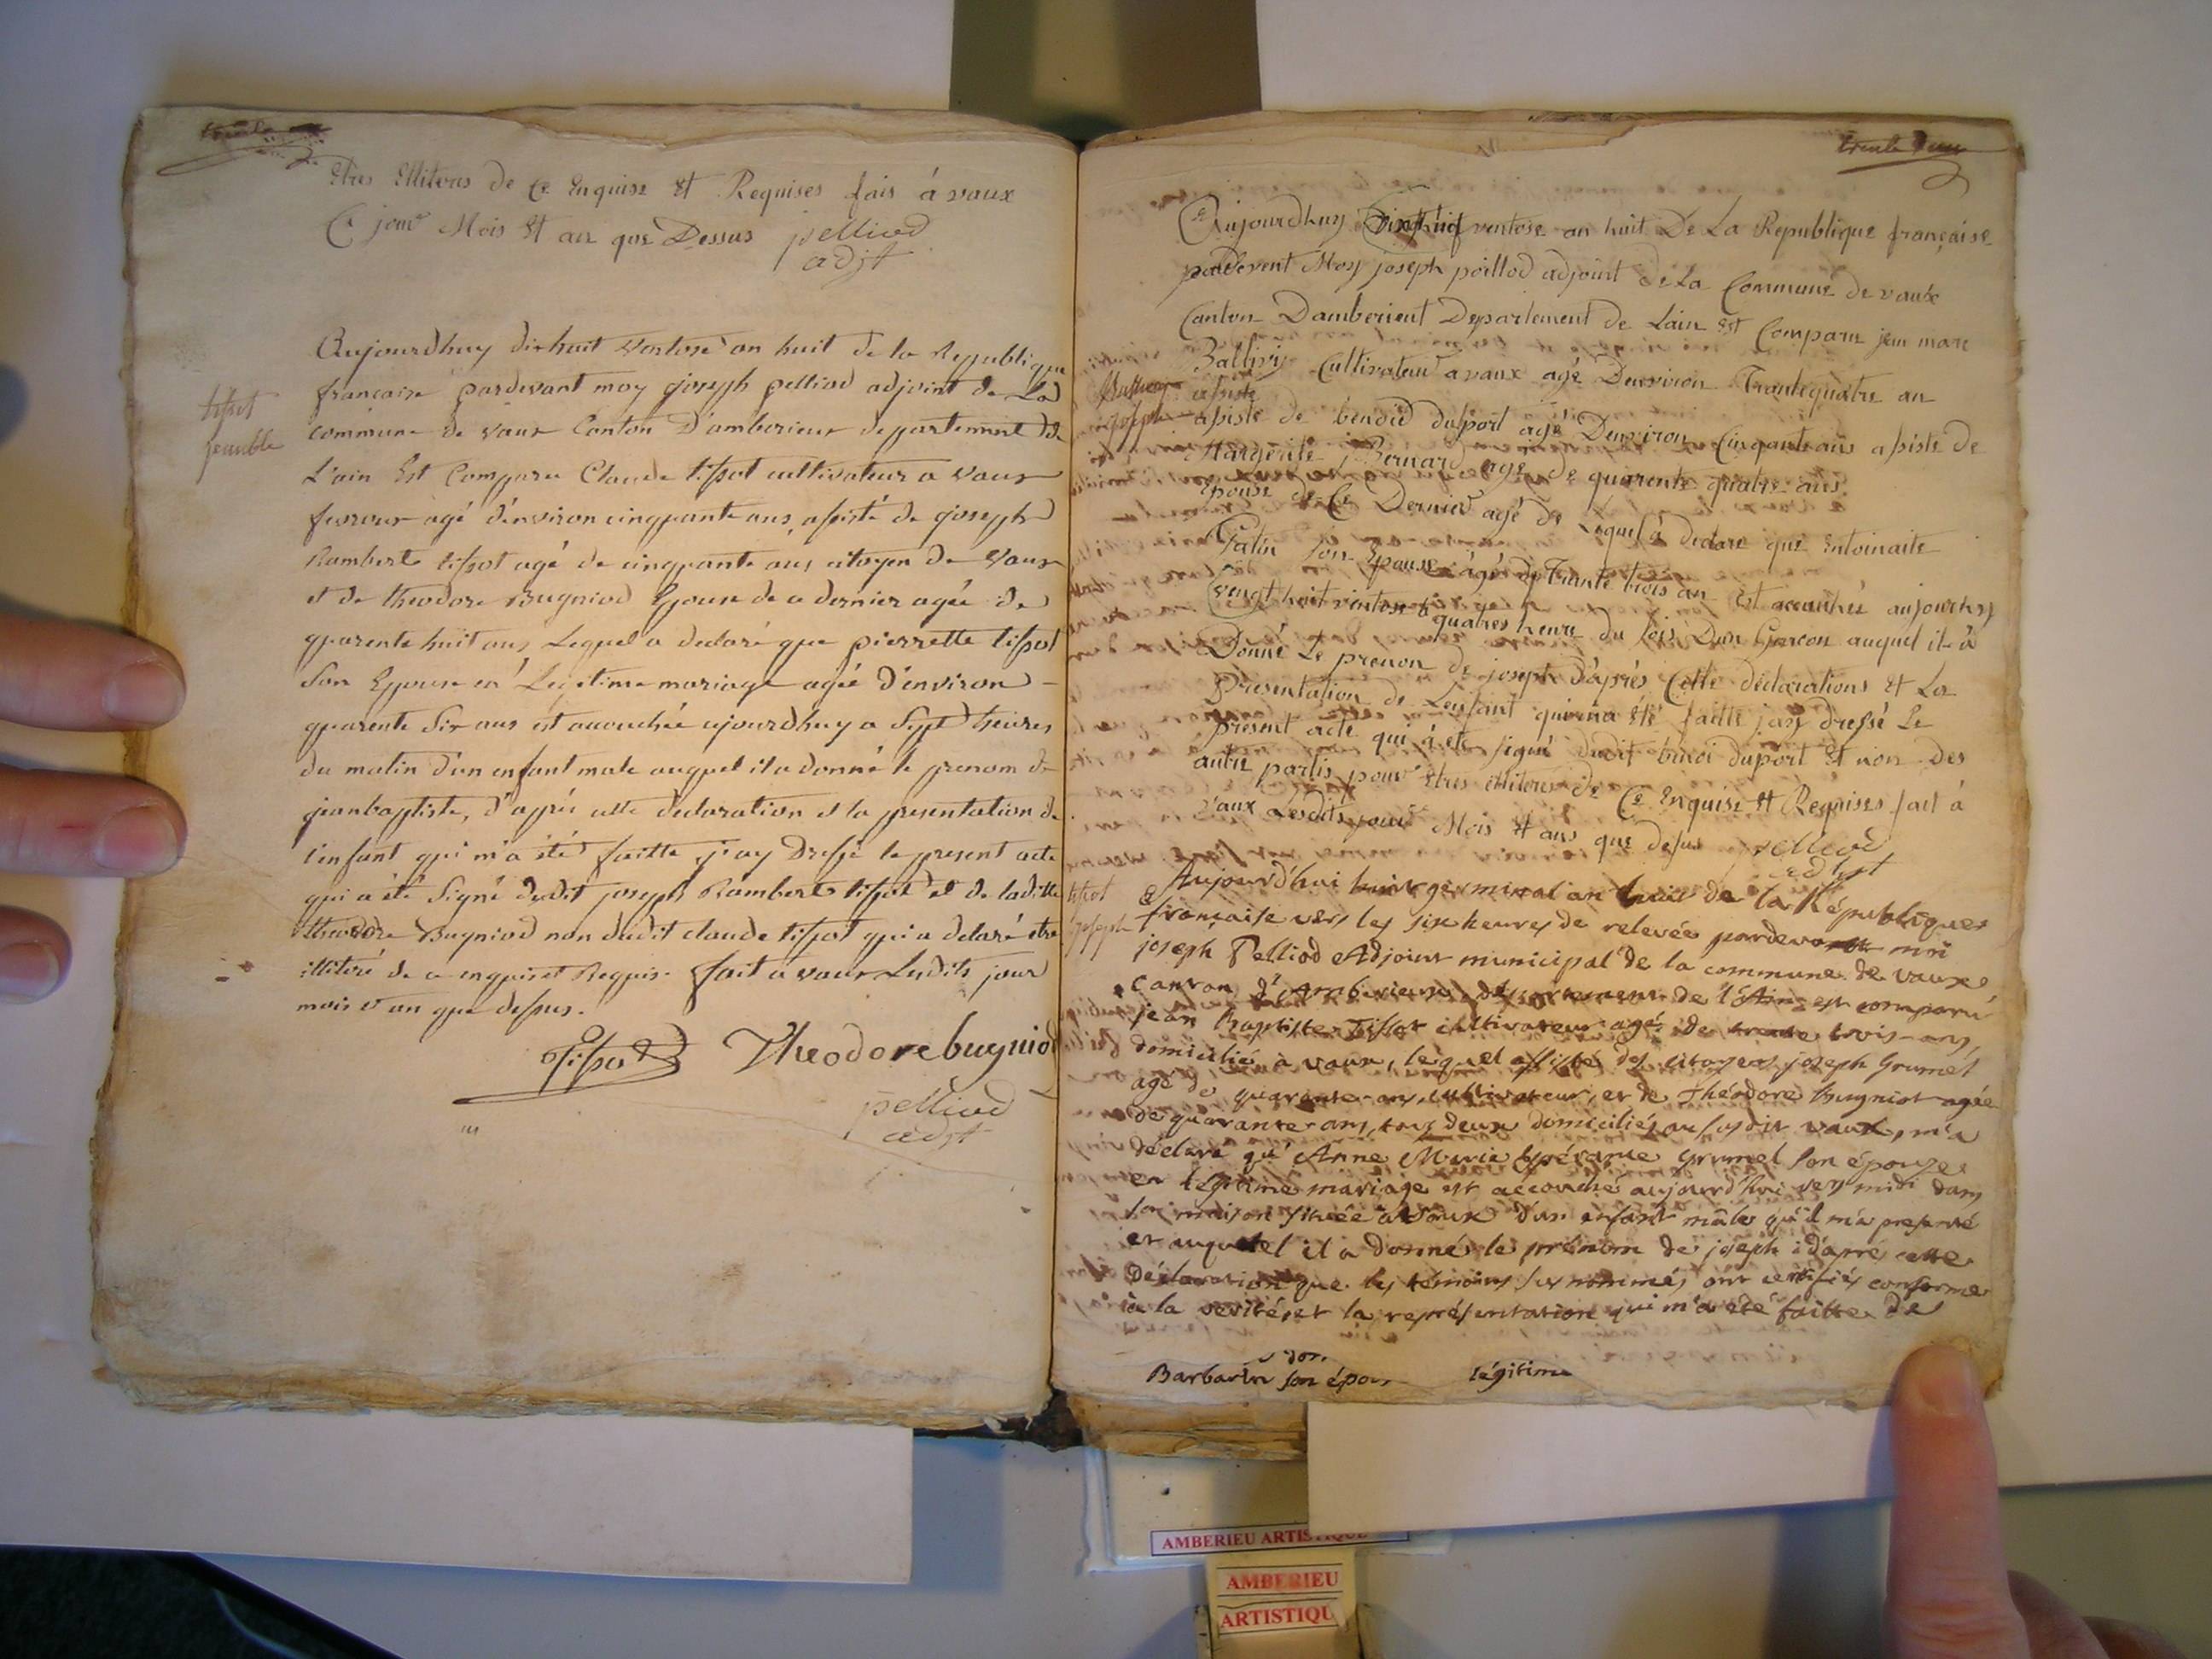 Etres Ellitous de Ce Enquise Et Requises fais á vaux
Ce jour Mois Et an que Dessus pelliod
adjt
Aujourdhuy dixhuit Ventose an huit de la Republique
francaise pardevant moy joseph pelliod adjoint de La
commune de vaux Canton D'amberieux departement de
L'ain Est Comparu Claude tissot cultivateur a vaux
agé d'environ cinquante ans, assisté de joseph
Rambert tissot agé de cinquante ans citoyen de vaux
et de theodore Bugniod Epouse de ce dernier agée de
quarente huit ans Lequel a declaré que pierrette tissot
Son Epouse en Legitime mariage agée d'environ
quarente Six ans est accouchée ajourdhuy a Sept heures
du matin d'un enfant male auquel il a donné le prenom de
jeanbaptiste, d'après cette declaration et la presentation de
l'enfant qui m'a été faitte j'ay Dressé le present acte
qui a été Signé dudit joseph Rambert tissot et de laditte
theodore Bugniod non dudit claude tissot qui a delaré etre
illiteré de ce enquis et Requis. fait a vaux Lesdits jour
mois et an que dessus.
Tissot Theodore bugniod
pelliod
adjt
tissot
trente deux
Aujourdhuy ventose an huit De La Republique française
pardevent Moy joseph poillod adjoint de La Commune de vaux
Canton Damberieut Departement de Lain Est Comparu jean marc
Ballivy Cultivateur a vaux agé Denviron Trantequatre an
assiste
assiste de bendid duport agé Denviron Cinquante ans assiste de
Margerite Bernard age de quarente quatre ans
Epouse de Ce Dernier agé de Lequel á declare que Entoinaite
Patin Son Epouse ágé de Trante trois an Est accouchée aujourhuy
vengt huit ventose á quatres heure du Soir Dun Garcon auquel il á
Donné Le prenon de joseph D'áprés Cette declarations Et La
Presentation de Lenfant qui ma Eté faitte jay dressé Le
present acte qui á eté signé dudit bendi duport Et non des
autre partis pour Etres illitores de Ce Enquise Et Requises fait á
vaux Lesdits jour Mois Et ans que desus pelliod
adjt
tissot
joseph
Aujourd'hui huit germinal an huit de la République
française vers les six heures de relevée pardevant moi
joseph Pelliod Adjoint municipal de la commune de vaux
canton d'Amberieux département de l'Ain est comparu
jean Baptiste Tissot cultivateur agé de trente trois ans,
domicilié à vaux, lequel assisté des citoyens joseph Grumet
agé de quarante ans, cultivateur, et de Théodore Bugniot agée
de quarante ans, tous deux domiciliés au susdit vaux, m'a
déclaré qu'Anne Marie Espérance Grumel son épouse
en légitime mariage est accouché aujourd'hui vers midi dans
sa maison située à vaux d'un enfant mâle qu'il m'a presenté
et auquel il a donné le prénom de joseph : d'après cette
déclaration que les témoins susnommés ont certifiés conforme
à la vérité, et la représentation qui m'a été faitte de
Barbarin son épous légitime
AMBERIEU ARTISTIQUE
AMBERIEU
ARTISTIQU